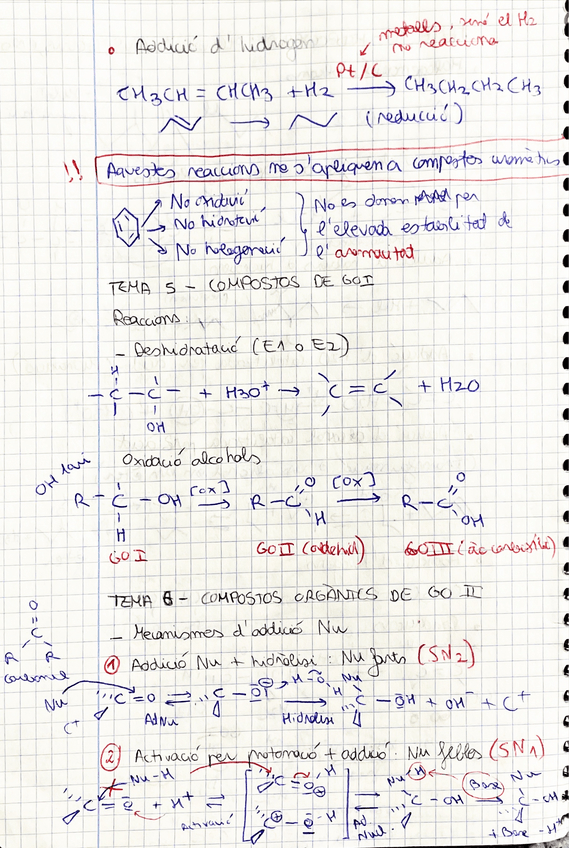 metalls, sinó el H2
no reacciona
• Addició d'hidrogen
Pt/C
CH3CH = CHCH3 + H2 → CH3CH2CH2CH3
→ (reducció)
!! Aquestes reaccions no s'apliquen a compostos aromàtics
No oxidació
No hidratació
No halogenació
No es donen per
l'elevada estabilitat de
l'aromacitat
TEMA 5 - COMPOSTOS DE GO I
Reaccions:
- Deshidratació (E1 o E2)
H
- C - C - + H3O+ → C = C + H2O
OH
Oxidació alcohols
OH
R - C - OH [OX] → R - C = O [OX] → R - C = O
H H OH
GO I GO II (aldehid) GO III (àc carboxílic)
TEMA 6 - COMPOSTOS ORGÀNICS DE GO II
- Mecanismes d'addició Nu
O
C
R R
carbonil
① Addició Nu + hidròlisi: Nu forts (SN2)
Nu C = O ⇌ C - O⊖ H - O H Nu C - OH + OH- + C+
C+ AdNu Hidròlisi
② Activació per protonació + addició: Nu febles (SN1)
Nu-H
C = O + H+ ⇌ C = O H ⊕ ⇌ Nu - H C - OH Base → Nu C - OH
C⊕ - O - H
Activació Ad Nucl + Base - H+